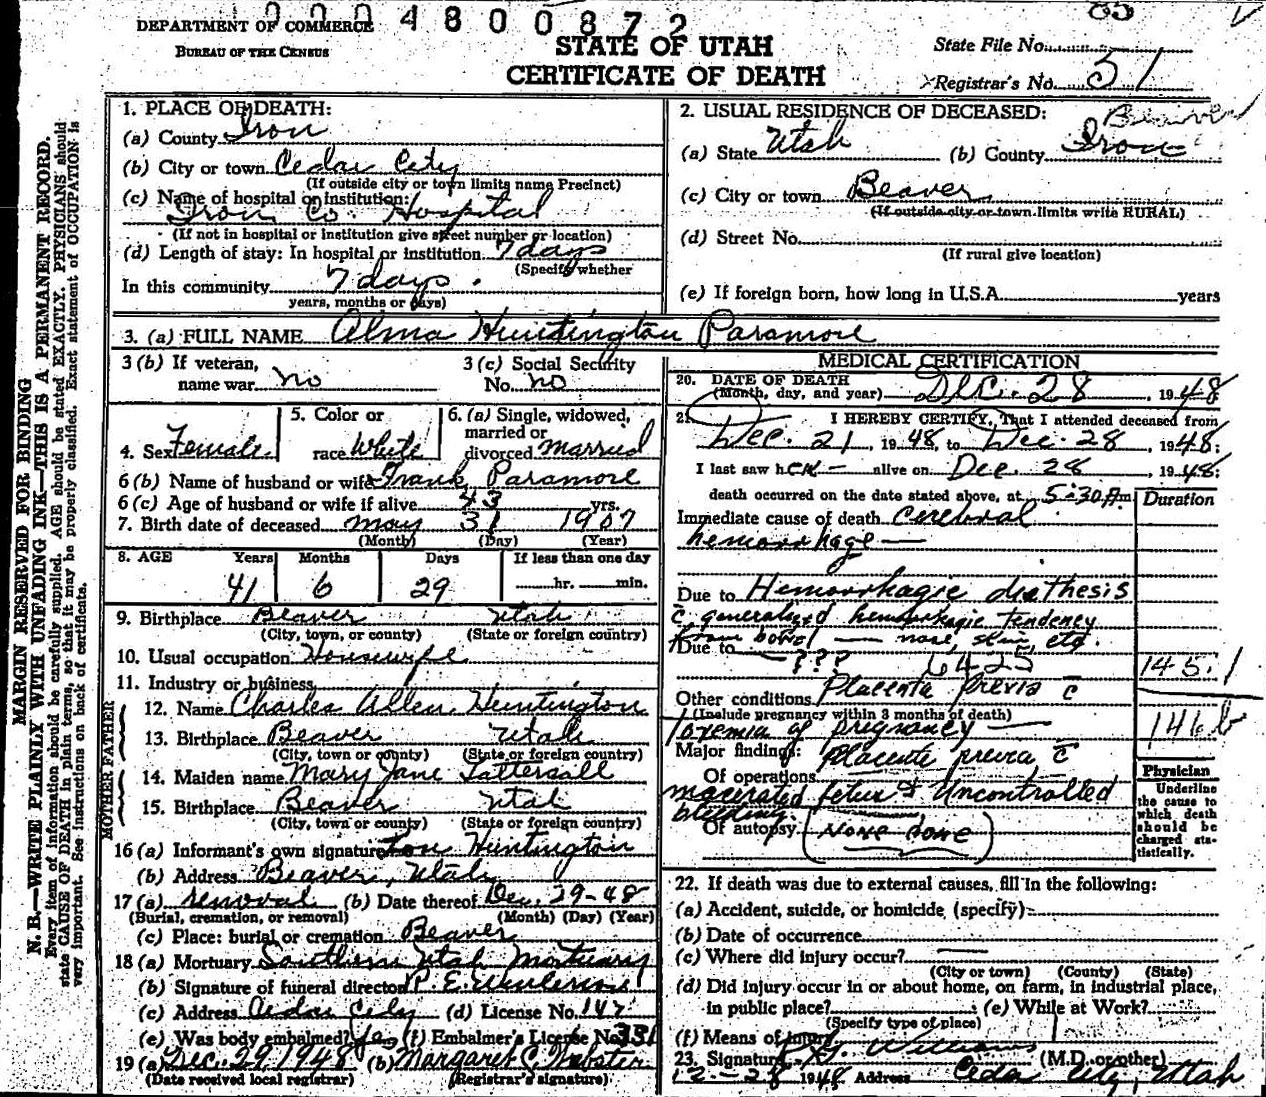 0004800872
85
DEPARTMENT OF COMMERCE
BUREAU OF THE CENSUS
STATE OF UTAH
CERTIFICATE OF DEATH
State File No.
Registrar's No. 51
MARGIN RESERVED FOR BINDING
N. B.—WRITE PLAINLY WITH UNFADING INK—THIS IS A PERMANENT RECORD.
Every item of information should be carefully supplied. AGE should be stated EXACTLY. PHYSICIANS should
state CAUSE OF DEATH in plain terms, so that it may be properly classified. Exact statement of OCCUPATION is
very important. See instructions on back of certificate.
1. PLACE OF DEATH:
(a) County Iron
(b) City or town Cedar City
(If outside city or town limits name Precinct)
(c) Name of hospital or institution:
Iron Co. Hospital
(If not in hospital or institution give street number or location)
(d) Length of stay: In hospital or institution 7 days
(Specify whether
In this community 7 days.
years, months or days)
2. USUAL RESIDENCE OF DECEASED:
Beaver
(a) State Utah (b) County Iron
(c) City or town Beaver
(If outside city or town limits write RURAL)
(d) Street No.
(If rural give location)
(e) If foreign born, how long in U.S.A. years
3. (a) FULL NAME Alma Huntington Paramore
3 (b) If veteran, name war no
3 (c) Social Security No. no
4. Sex Female
5. Color or race White
6. (a) Single, widowed, married or divorced married
6 (b) Name of husband or wife Frank Paramore
6 (c) Age of husband or wife if alive 43 yrs.
7. Birth date of deceased May 31 1907
(Month) (Day) (Year)
8. AGE Years Months Days If less than one day
41 6 29 hr. min.
9. Birthplace Beaver Utah
(City, town, or county) (State or foreign country)
10. Usual occupation Housewife
11. Industry or business
FATHER
12. Name Charles Allen Huntington
13. Birthplace Beaver Utah
(City, town or county) (State or foreign country)
MOTHER
14. Maiden name Mary Jane Tattersall
15. Birthplace Beaver Utah
(City, town or county) (State or foreign country)
16 (a) Informant's own signature Huntington
(b) Address Beaver, Utah
17 (a) removal (b) Date thereof Dec. 29-48
(Burial, cremation, or removal) (Month) (Day) (Year)
(c) Place: burial or cremation Beaver
18 (a) Mortuary Southern Utah Mortuary
(b) Signature of funeral director P. E.
(c) Address Cedar City (d) License No. 147
(e) Was body embalmed? yes (f) Embalmer's License No. 331
19 (a) Dec. 29, 1948 (b) Margaret C. Webster
(Date received local registrar) (Registrar's signature)
MEDICAL CERTIFICATION
20. DATE OF DEATH
(Month, day, and year) Dec. 28, 1948
21. I HEREBY CERTIFY, That I attended deceased from
Dec. 21, 1948, to Dec. 28, 1948;
I last saw her alive on Dec. 28 1948;
death occurred on the date stated above, at 5:30 A.m. Duration
Immediate cause of death Cerebral
hemorrhage —
Due to Hemorrhagic diathesis
c̄ generalized hemorrhagic tendency
from bowel — nose, skin, etc.
Due to — ??? 6425 145.1
Other conditions Placenta previa c̄
(Include pregnancy within 3 months of death)
toxemia of pregnancy — 146b
Major findings: Placenta previa c̄
Of operations
macerated fetus & Uncontrolled
bleeding.
Of autopsy (None done)
Physician
Underline the cause to which death should be charged statistically.
22. If death was due to external causes, fill in the following:
(a) Accident, suicide, or homicide (specify)
(b) Date of occurrence
(c) Where did injury occur?
(City or town) (County) (State)
(d) Did injury occur in or about home, on farm, in industrial place,
in public place? (e) While at Work?
(Specify type of place)
(f) Means of injury
23. Signature Williams (M.D. or other)
12-28 1948 Address Cedar City, Utah